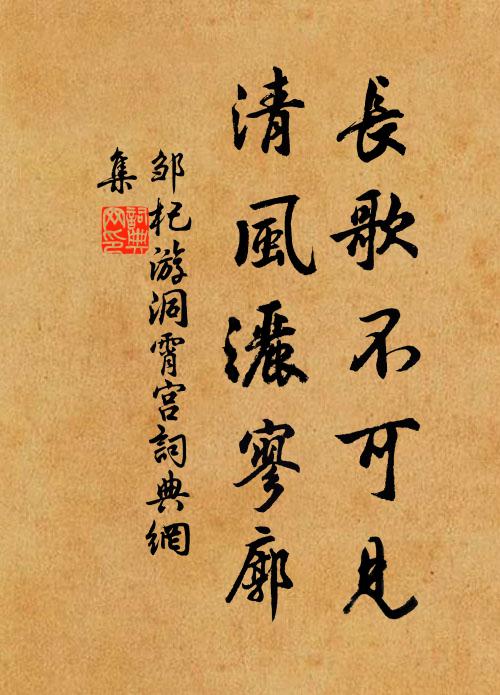 長歌不可見
清風灑寥廓
邹杞游洞霄宫詞典網
集
詞典
网印